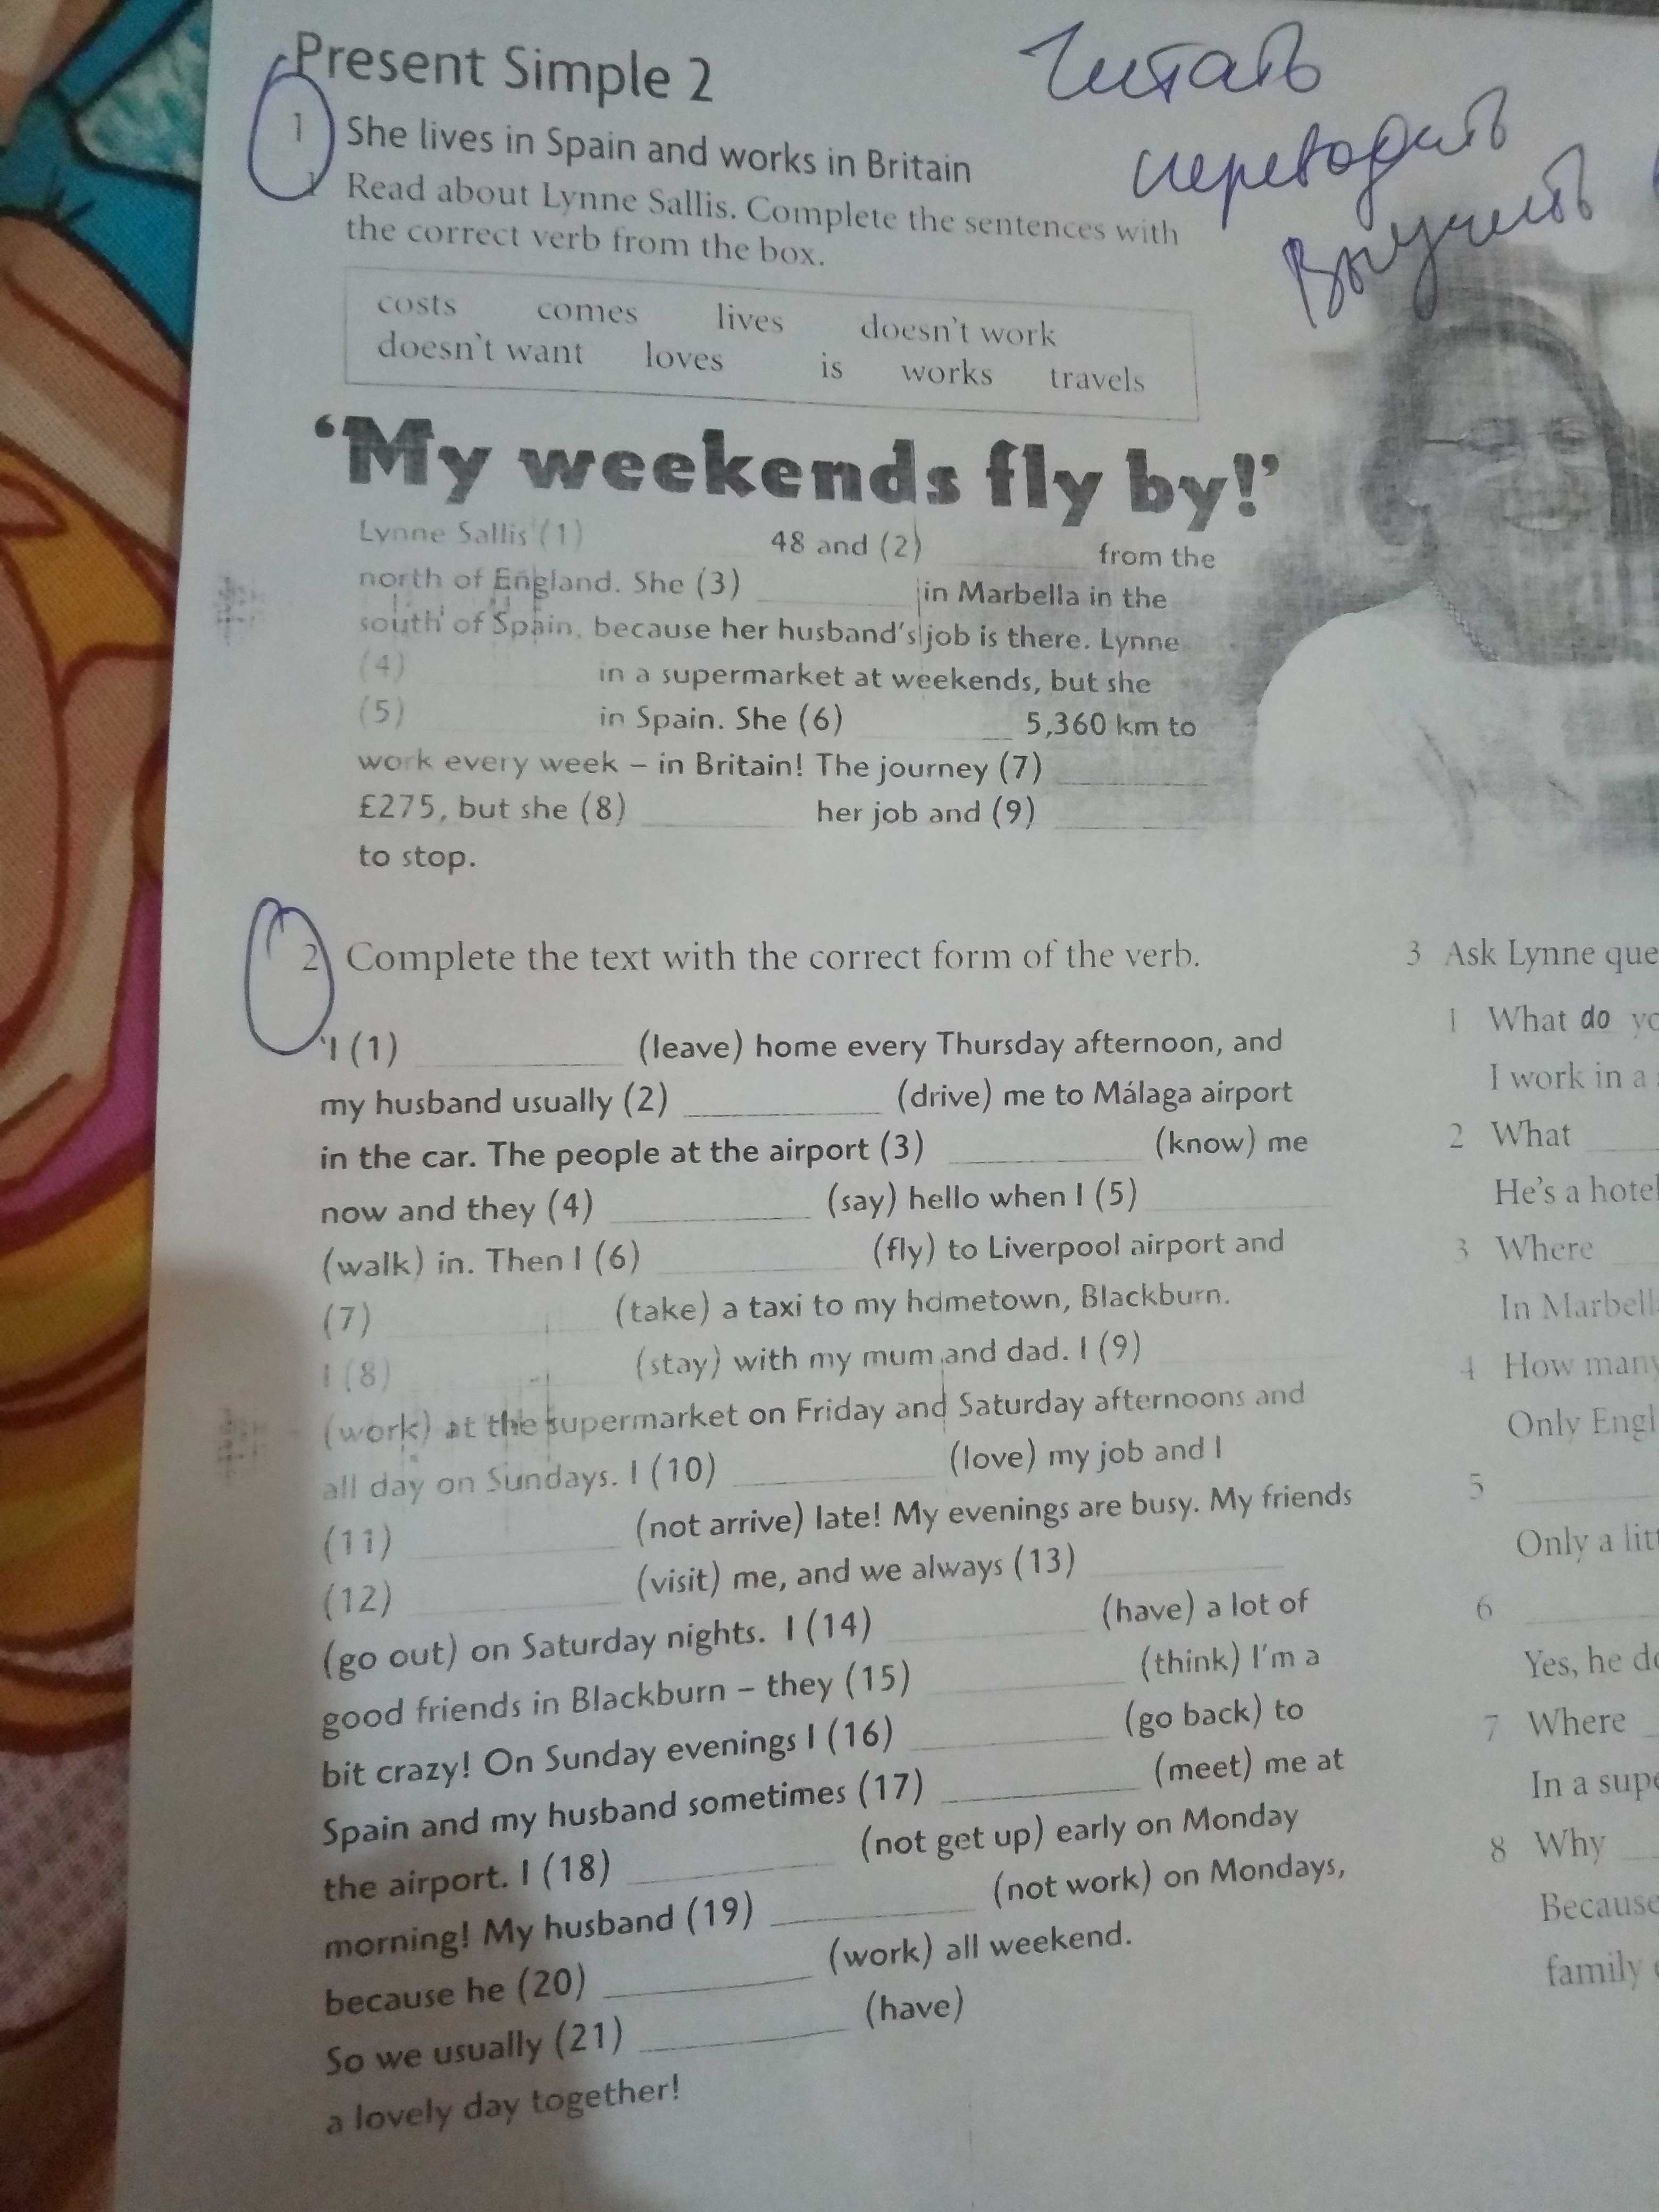 Present Simple 2
Читать
переводить
Выучить
1 She lives in Spain and works in Britain
1 Read about Lynne Sallis. Complete the sentences with
the correct verb from the box.
costs comes lives doesn't work
doesn't want loves is works travels
‘My weekends fly by!’
Lynne Sallis (1) ________ 48 and (2) ________ from the
north of England. She (3) ________ in Marbella in the
south of Spain, because her husband's job is there. Lynne
(4) ________ in a supermarket at weekends, but she
(5) ________ in Spain. She (6) ________ 5,360 km to
work every week – in Britain! The journey (7) ________
£275, but she (8) ________ her job and (9) ________
to stop.
2 Complete the text with the correct form of the verb.
‘I (1) ________ (leave) home every Thursday afternoon, and
my husband usually (2) ________ (drive) me to Málaga airport
in the car. The people at the airport (3) ________ (know) me
now and they (4) ________ (say) hello when I (5) ________
(walk) in. Then I (6) ________ (fly) to Liverpool airport and
(7) ________ (take) a taxi to my hometown, Blackburn.
I (8) ________ (stay) with my mum and dad. I (9) ________
(work) at the supermarket on Friday and Saturday afternoons and
all day on Sundays. I (10) ________ (love) my job and I
(11) ________ (not arrive) late! My evenings are busy. My friends
(12) ________ (visit) me, and we always (13) ________
(go out) on Saturday nights. I (14) ________ (have) a lot of
good friends in Blackburn – they (15) ________ (think) I'm a
bit crazy! On Sunday evenings I (16) ________ (go back) to
Spain and my husband sometimes (17) ________ (meet) me at
the airport. I (18) ________ (not get up) early on Monday
morning! My husband (19) ________ (not work) on Mondays,
because he (20) ________ (work) all weekend.
So we usually (21) ________ (have)
a lovely day together!
3 Ask Lynne que
1 What do yo
I work in a
2 What ____
He's a hotel
3 Where ____
In Marbell
4 How many
Only Engl
5 ____
Only a litt
6 ____
Yes, he do
7 Where ____
In a supe
8 Why ____
Because
family